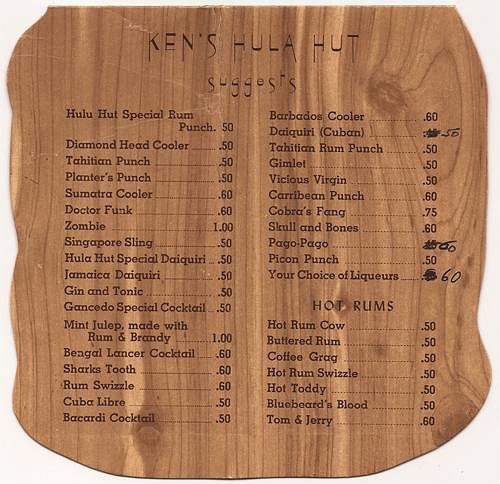 KEN'S HULA HUT
suggests
Hulu Hut Special Rum
Punch. 50
Diamond Head Cooler .50
Tahitian Punch .50
Planter's Punch .50
Sumatra Cooler .60
Doctor Funk .60
Zombie 1.00
Singapore Sling .50
Hula Hut Special Daiquiri .50
Jamaica Daiquiri .50
Gin and Tonic .50
Gancedo Special Cocktail .50
Mint Julep, made with
Rum & Brandy 1.00
Bengal Lancer Cocktail .60
Sharks Tooth .60
Rum Swizzle .60
Cuba Libre .50
Bacardi Cocktail .50
Barbados Cooler .60
Daiquiri (Cuban) 50
Tahitian Rum Punch .50
Gimlet .50
Vicious Virgin .50
Carribean Punch .60
Cobra's Fang .75
Skull and Bones .60
Pago-Pago 60
Picon Punch .50
Your Choice of Liqueurs 60
HOT RUMS
Hot Rum Cow .50
Buttered Rum .50
Coffee Grag .50
Hot Rum Swizzle .50
Hot Toddy .50
Bluebeard's Blood .50
Tom & Jerry .60